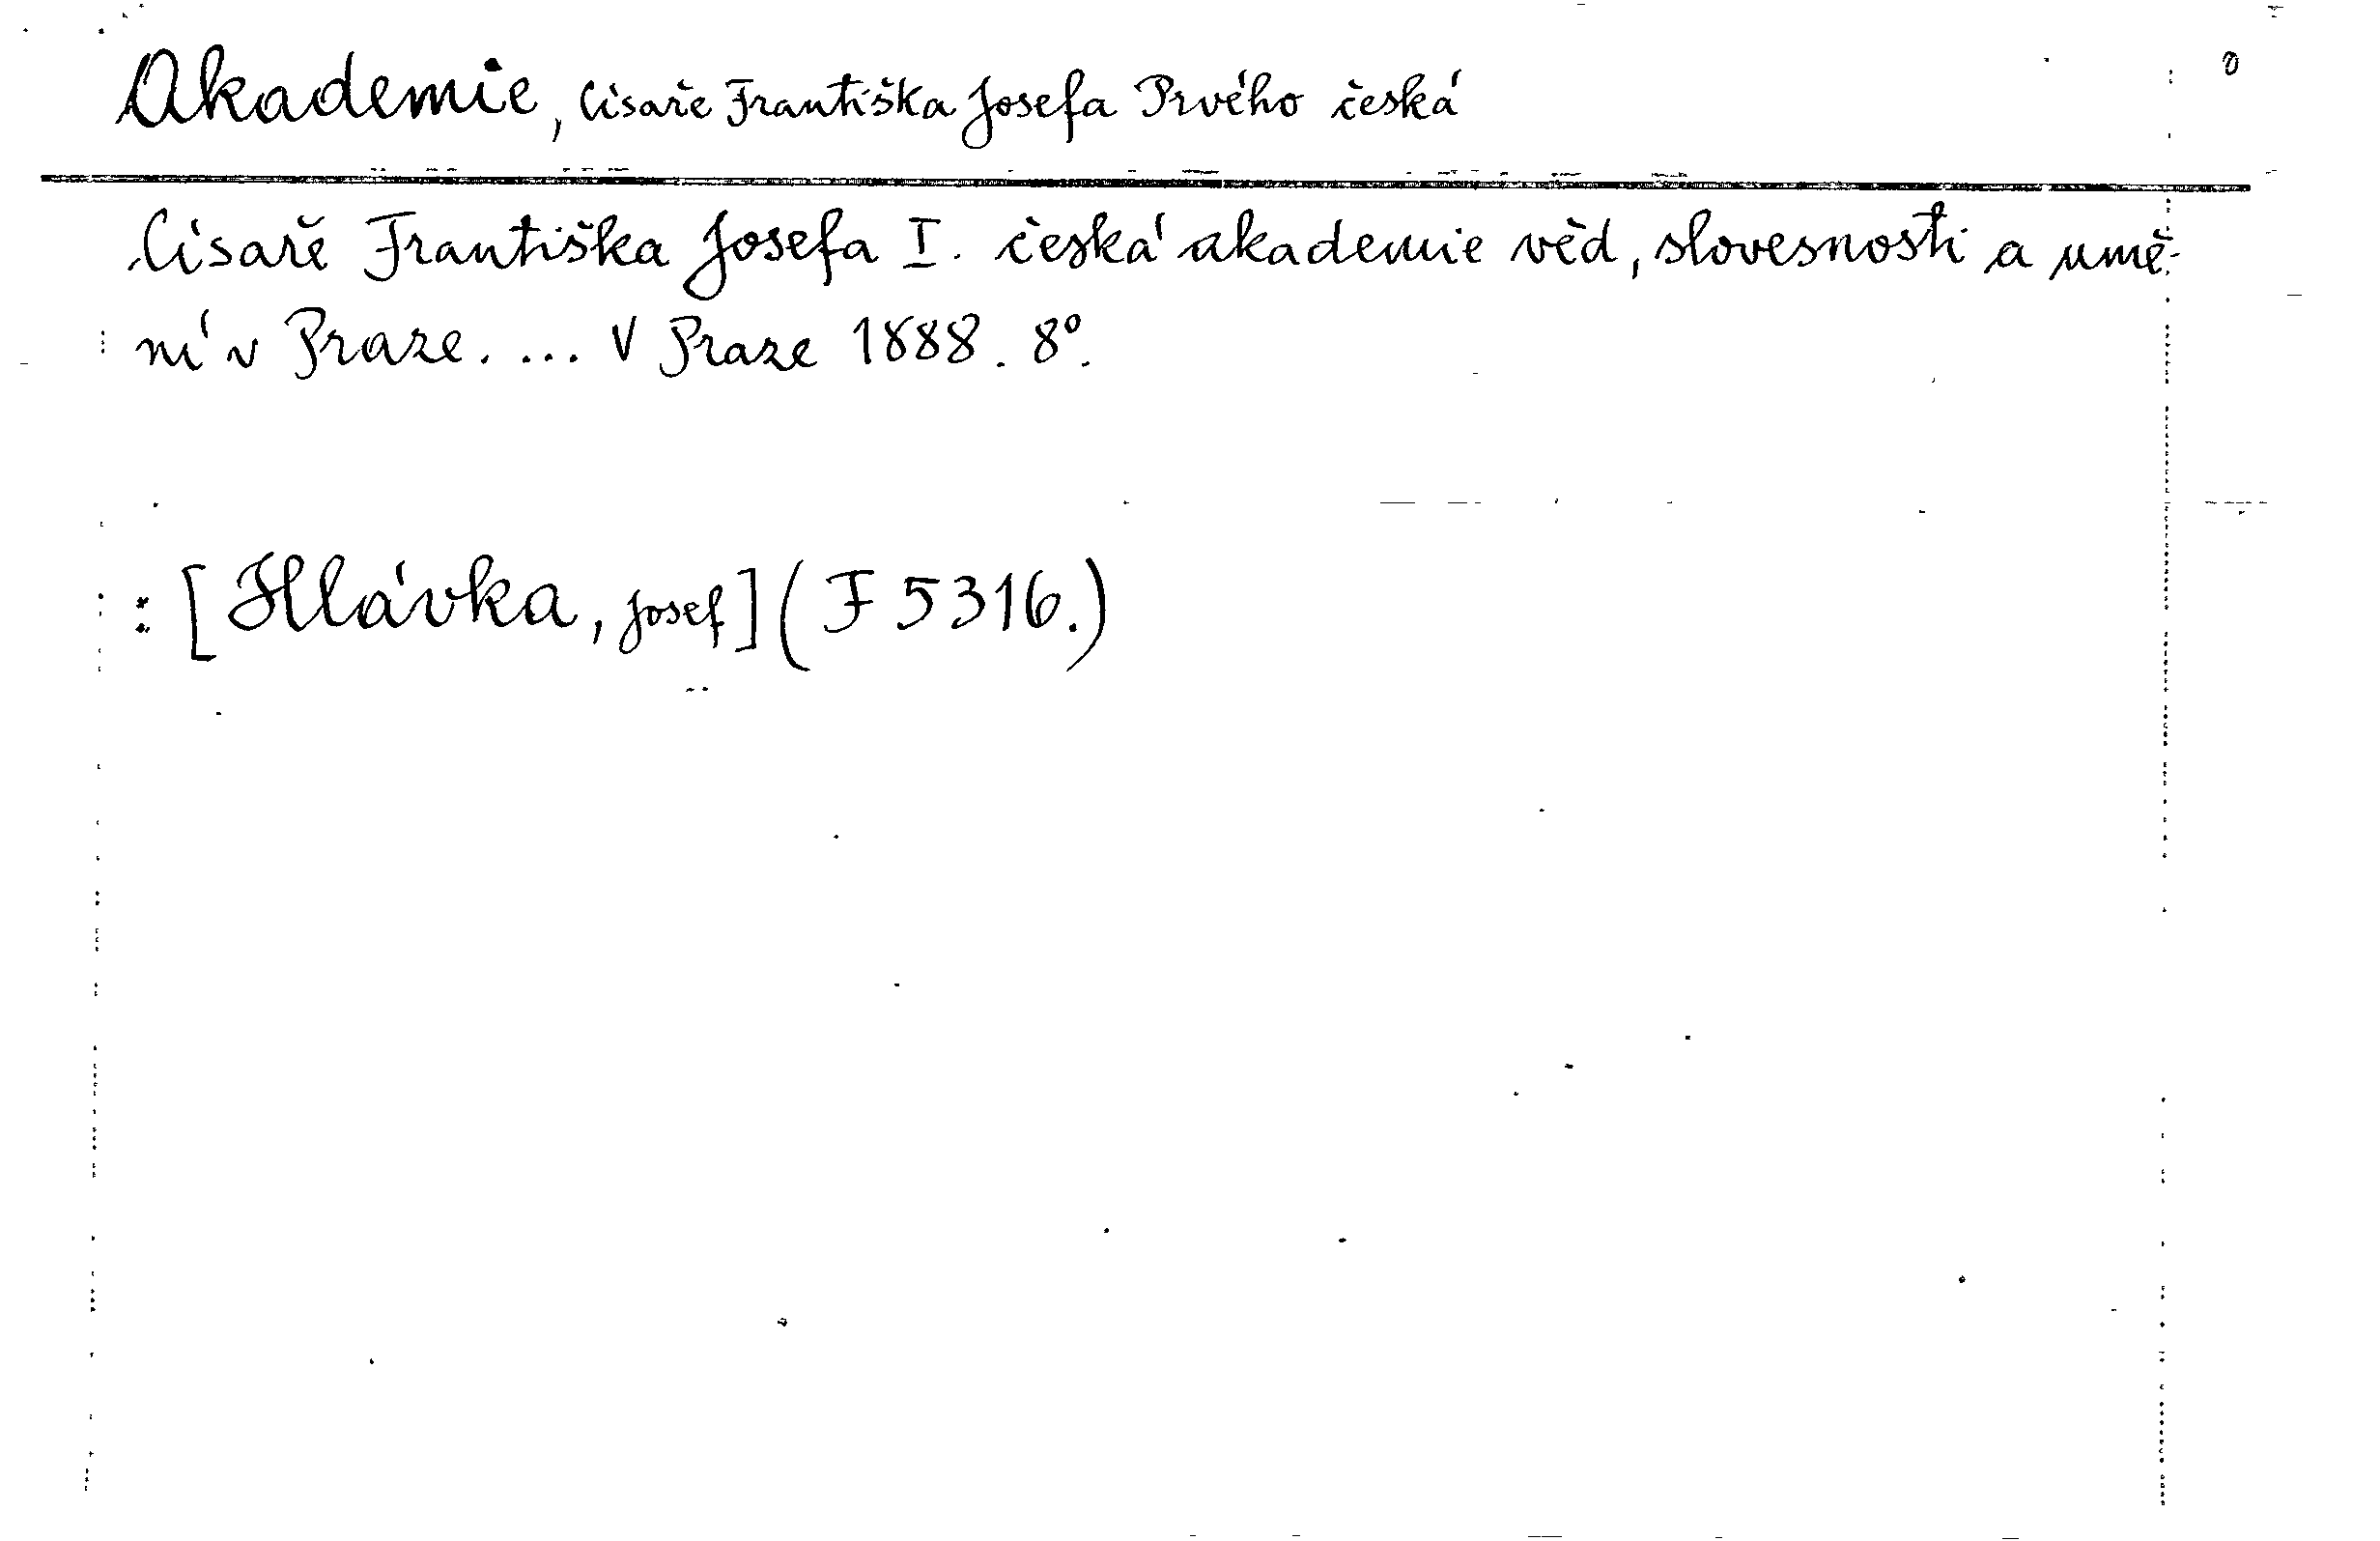 Akademie, Císaře Františka Josefa Prvého česká
0
Císaře Františka Josefa I. česká akademie věd, slovesnosti a umě-
ní v Praze. ... V Praze 1888. 8°.
: [Hlávka, Josef] (F 5316.)